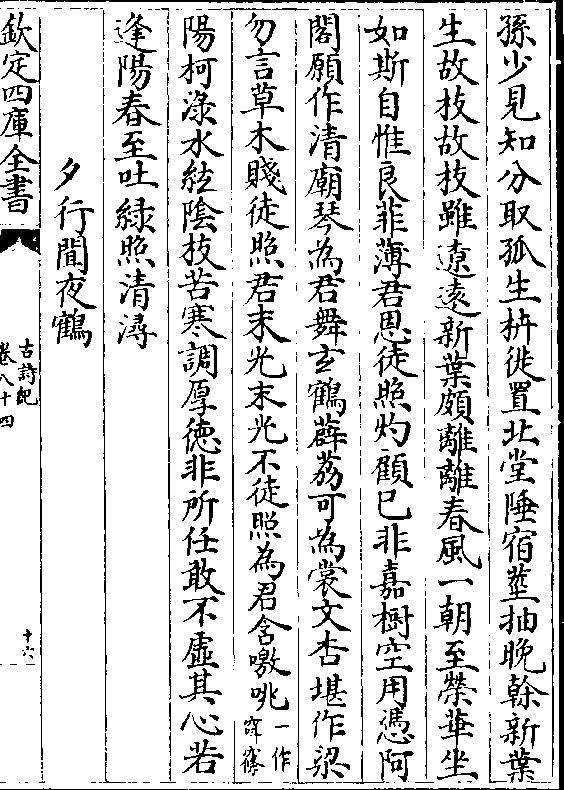 孫少見知分取孤生枿徙置北堂陲宿莖抽晚榦新葉
生故枝故枝雖遼遠新葉頗離離春風一朝至榮華坐
如斯自惟良菲薄君恩徒照灼顧已非嘉樹空用憑阿
閣願作清廟琴為君舞玄鶴薜荔可為裳文杏堪作梁
勿言草木賤徒照君末光末光不徒照為君含噭咷一作
陽柯淥水絃陰枝苦寒調厚徳非所任敢不虛其心若
逢陽春至吐緑照清潯
夕行聞夜鶴
欽定四庫全書
古詩紀
卷八十四
十六